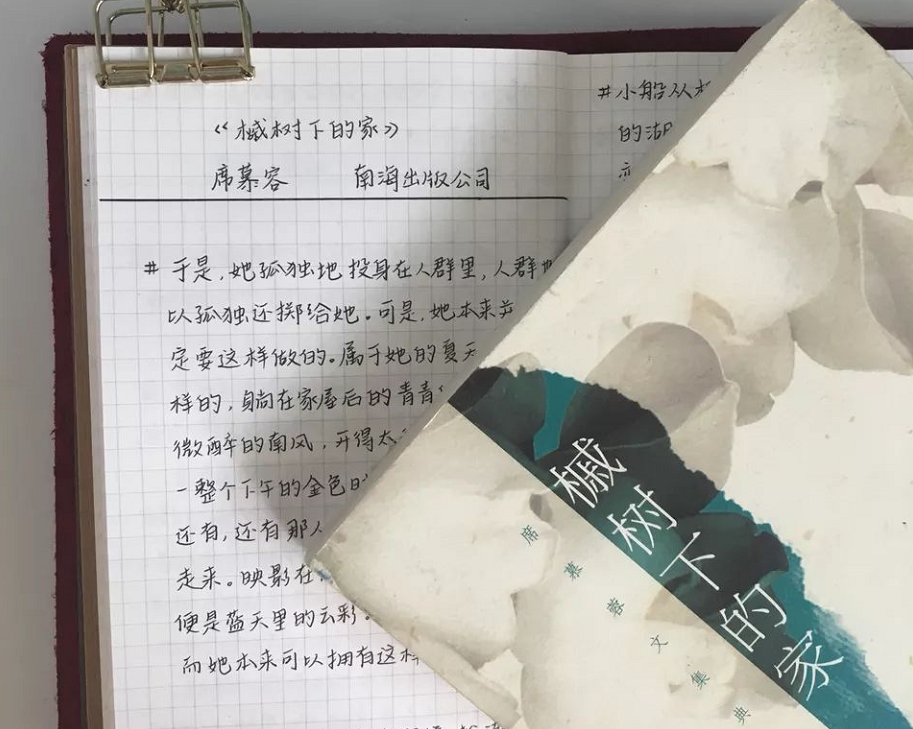 《槭树下的家》
席慕容 南海出版公司
# 于是，她孤独地投身在人群里，人群
以孤独还掷给她。可是，她本来并
定要这样做的。属于她的夏天
样的，躺在家屋后的青青
微醉的南风，开得太
一整个下午的金色
还有，还有那
走来。映影在
便是蓝天里的云彩。
而她本来可以拥有这样
# 小船从
的
槭树下的家
席慕蓉文集典